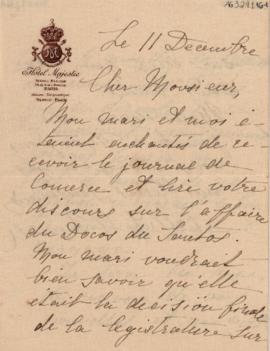 Hotel Majestic
PARIS
Le 11 Decembre
Cher Monsieur,
Mon mari et moi é-
taient enchantés de re-
cevoir le journal de
Comerce et lire votre
discours sur l'affaire
du Docos du Santos.
Mon mari voudrait
bien savoir qu'elle
était la decision finale
de la legistrature sur